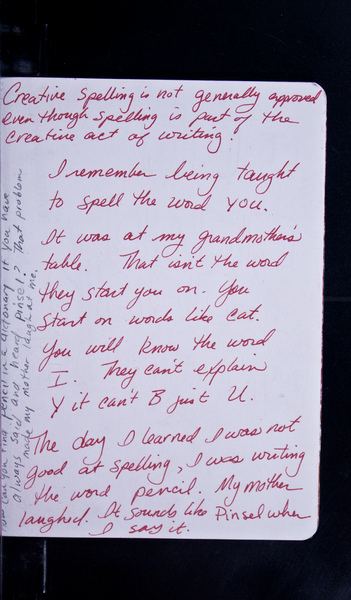 Creative Spelling is not generally approved
even though spelling is part of the
creative act of writing.
I remember being taught
to spell the word you.
It was at my grandmother's
table. That isn't the word
they start you on. You
start on words like cat.
You will know the word
I. They can't explain
Y it can't B just U.
The day I learned I was not
good at spelling, I was writing
the word pencil. My mother
laughed. It sounds like Pinsel when
I say it.
How can you find pencil in a dictionary if you have
always said and heard pinsel? That problem
made my mother laugh at me.